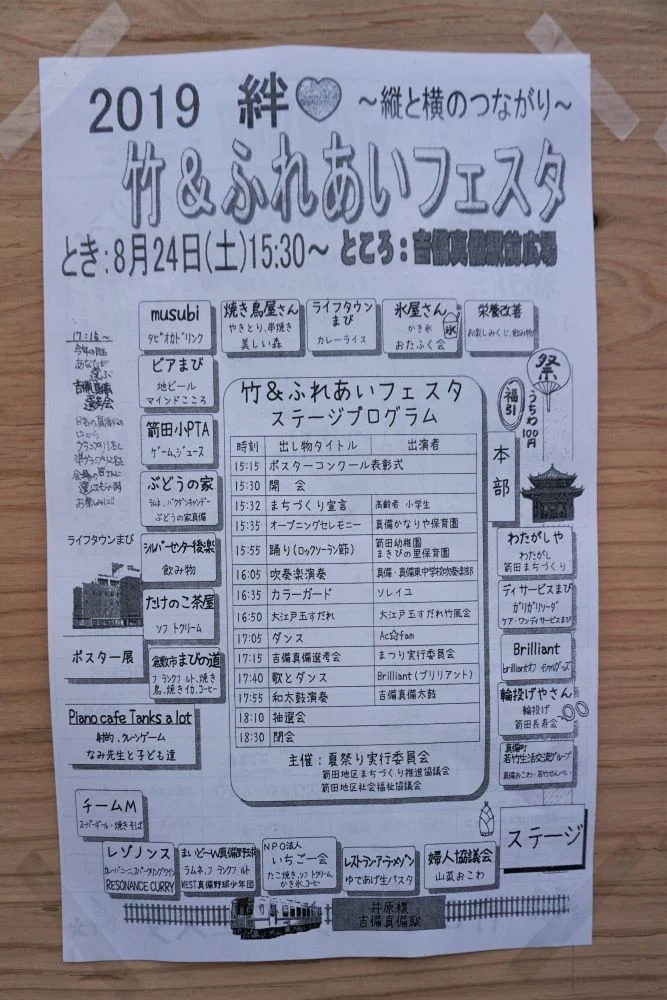 2019 絆 ～縦と横のつながり～
竹＆ふれあいフェスタ
とき：8月24日(土)15:30～ ところ：吉備真備駅前広場
musubi
タピオカドリンク
焼き鳥屋さん
やきとり、串焼き
美しい森
ライフタウン
まび
カレーライス
氷屋さん
かき氷
おたふく会
氷
栄養改善
お楽しみくじ、飲み物
17:15～
今年の顔
あなたが
選ぶ
吉備真備
選考会
お楽しみに!!
ビアまび
地ビール
マインドこころ
箭田小PTA
ゲーム、ジュース
ぶどうの家
ラムネ、バクダンキャンデー
ぶどうの家真備
シルバーセンター後楽
飲み物
たけのこ茶屋
ソフトクリーム
倉敷市まびの道
フランクフルト、焼き
鳥、焼きイカ、コーヒー
ライフタウンまび
ポスター展
Piano cafe Tanks a lot
射的、クレーンゲーム
なみ先生と子ども達
竹＆ふれあいフェスタ
ステージプログラム
時刻 出し物タイトル 出演者
15:15 ポスターコンクール表彰式
15:30 開 会
15:32 まちづくり宣言 高齢者 小学生
15:35 オープニングセレモニー 真備かなりや保育園
15:55 踊り(ロックソーラン節) 箭田幼稚園
まきびの里保育園
16:05 吹奏楽演奏 真備・真備東中学校吹奏楽部
16:35 カラーガード ソレイユ
16:50 大江戸玉すだれ 大江戸玉すだれ竹風会
17:05 ダンス Ac☆fam
17:15 吉備真備選考会 まつり実行委員会
17:40 歌とダンス Brilliant(ブリリアント)
17:55 和太鼓演奏 吉備真備太鼓
18:10 抽選会
18:30 閉会
主催：夏祭り実行委員会
箭田地区まちづくり推進協議会
箭田地区社会福祉協議会
祭
うちわ100円
福引
本部
わたがしや
わたがし
箭田まちづくり
ディサービスまび
ガリガリソーダ
ケア・ワンディサービスまび
Brilliant
brilliantオフィシャルグッズ
輪投げやさん
輪投げ
箭田長寿会
真備町
若竹生活交流グループ
真備おこわ・若竹せんべい
ステージ
チームM
スーパーボール・焼きそば
レゾノンス
RESONANCE CURRY
まいど～W真備野球
ラムネ、フランクフルト
WEST真備野球少年団
NPO法人
いちご一会
たこ焼き、ソフトクリーム、
かき氷、コーヒー
レストラン・アーメゾン
ゆであげ生パスタ
婦人協議会
山菜おこわ
井原線
吉備真備駅